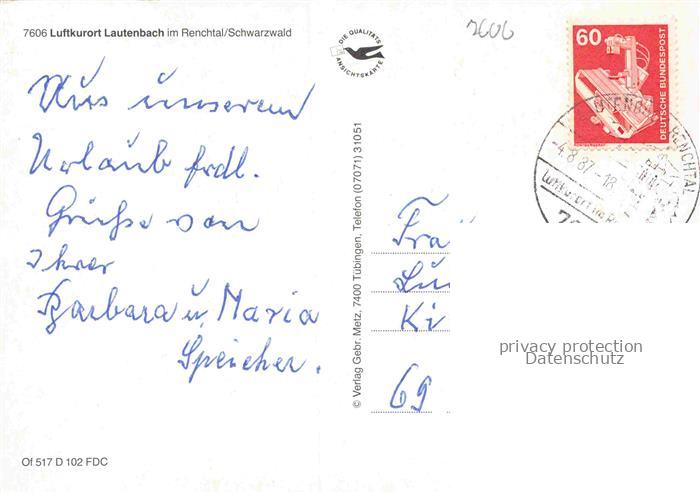 7606 Luftkurort Lautenbach im Renchtal/Schwarzwald
DIE QUALITÄTS
ANSICHTSKARTE
7606
60
DEUTSCHE BUNDESPOST
RENCHTAL
-4.8.87-18
Luftkurort im
Aus unserem
Urlaub frdl.
Grüße von
Ihrer
Barbara u. Maria
Speicher.
© Verlag Gebr. Metz, 7400 Tübingen, Telefon (07071) 31051
Frä
Ki
69
privacy protection
Datenschutz
Of 517 D 102 FDC